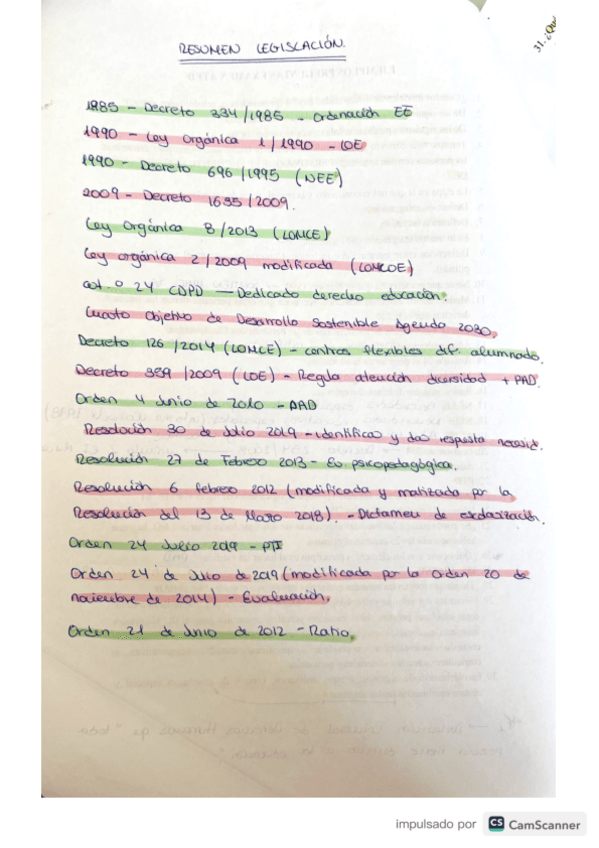 RESUMEN LEGISLACIÓN.
31. ¿Que
1985 - Decreto 334/1985 - Ordenación EE
1990 - Ley Orgánica 1/1990 - LOE
1990 - Decreto 696/1995 (NEE)
2009 - Decreto 1635/2009.
Ley Orgánica 8/2013 (LOMCE)
Ley orgánica 2/2009 modificada (LOMLOE)
art. 24 CDPD - Dedicado derecho educación.
Cuarto Objetivo de Desarrollo Sostenible Agenda 2030.
Decreto 126/2014 (LOMCE) - centros flexibles dif. alumnado.
Decreto 359/2009 (LOE) - Regula atención diversidad + PAD.
Orden 4 Junio de 2010 - PAD
Resolución 30 de Julio 2019 - identificas y das respuesta necesid.
Resolución 27 de Febrero 2013 - Ev. psicopedagógica.
Resolución 6 febrero 2012 (modificada y matizada por la
Resolución del 13 de Marzo 2018). - Dictamen de escolarización.
Orden 24 Julio 2019 - PTI
Orden 24 de Julio de 2019 (modificada por la Orden 20 de
noviembre de 2014) - Evaluación.
Orden 21 de Junio de 2012 - Ratio.
impulsado por CS CamScanner